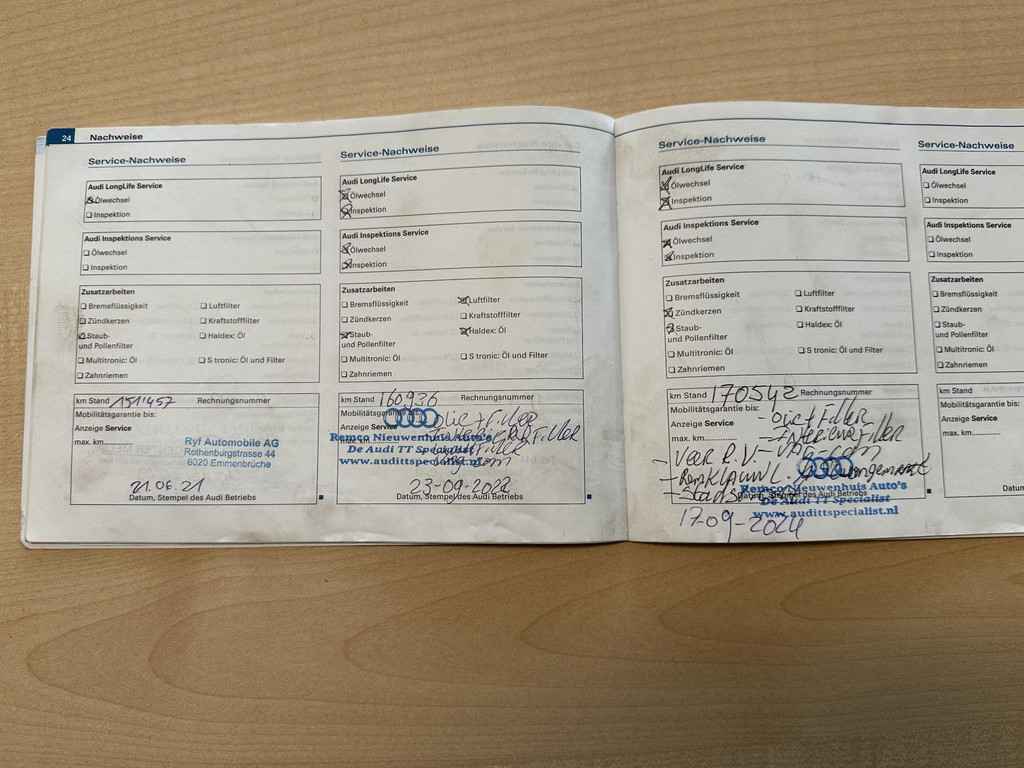 24 Nachweise
Service-Nachweise
Audi LongLife Service
Ölwechsel
Inspektion
Audi Inspektions Service
Ölwechsel
Inspektion
Zusatzarbeiten
Bremsflüssigkeit
Luftfilter
Zündkerzen
Kraftstofffilter
Staub-
und Pollenfilter
Haldex: Öl
Multitronic: Öl
S tronic: Öl und Filter
Zahnriemen
km Stand 151'457 Rechnungsnummer
Mobilitätsgarantie bis:
Anzeige Service
max. km
Ryf Automobile AG
Rothenburgstrasse 44
6020 Emmenbrücke
21.06.21
Datum, Stempel des Audi Betriebs
Service-Nachweise
Audi LongLife Service
Ölwechsel
Inspektion
Audi Inspektions Service
Ölwechsel
Inspektion
Zusatzarbeiten
Bremsflüssigkeit
Luftfilter
Zündkerzen
Kraftstofffilter
Staub-
und Pollenfilter
Haldex: Öl
Multitronic: Öl
S tronic: Öl und Filter
Zahnriemen
km Stand 160.936 Rechnungsnummer
Mobilitätsgarantie bis:
Anzeige Service
max. km
olie + Filter
Remco Nieuwenhuis Auto's
De Audi TT Specialist
www.audittspecialist.nl
23-09-2022
Datum, Stempel des Audi Betriebs
Service-Nachweise
Audi LongLife Service
Ölwechsel
Inspektion
Audi Inspektions Service
Ölwechsel
Inspektion
Zusatzarbeiten
Bremsflüssigkeit
Luftfilter
Zündkerzen
Kraftstofffilter
Staub-
und Pollenfilter
Haldex: Öl
Multitronic: Öl
S tronic: Öl und Filter
Zahnriemen
km Stand 170542 Rechnungsnummer
Mobilitätsgarantie bis:
Anzeige Service
max. km
- olie + Filter
- Interieur Filter
- Veer R.V.
Datum, Stempel des Audi Betriebs
Remco Nieuwenhuis Auto's
De Audi TT Specialist
www.audittspecialist.nl
17-09-2024
Service-Nachweise
Audi LongLife Service
Ölwechsel
Inspektion
Audi Inspektions Service
Ölwechsel
Inspektion
Zusatzarbeiten
Bremsflüssigkeit
Zündkerzen
Staub-
und Pollenfilter
Multitronic: Öl
Zahnriemen
km Stand
Mobilitätsgarantie
Anzeige Service
max. km
Datum